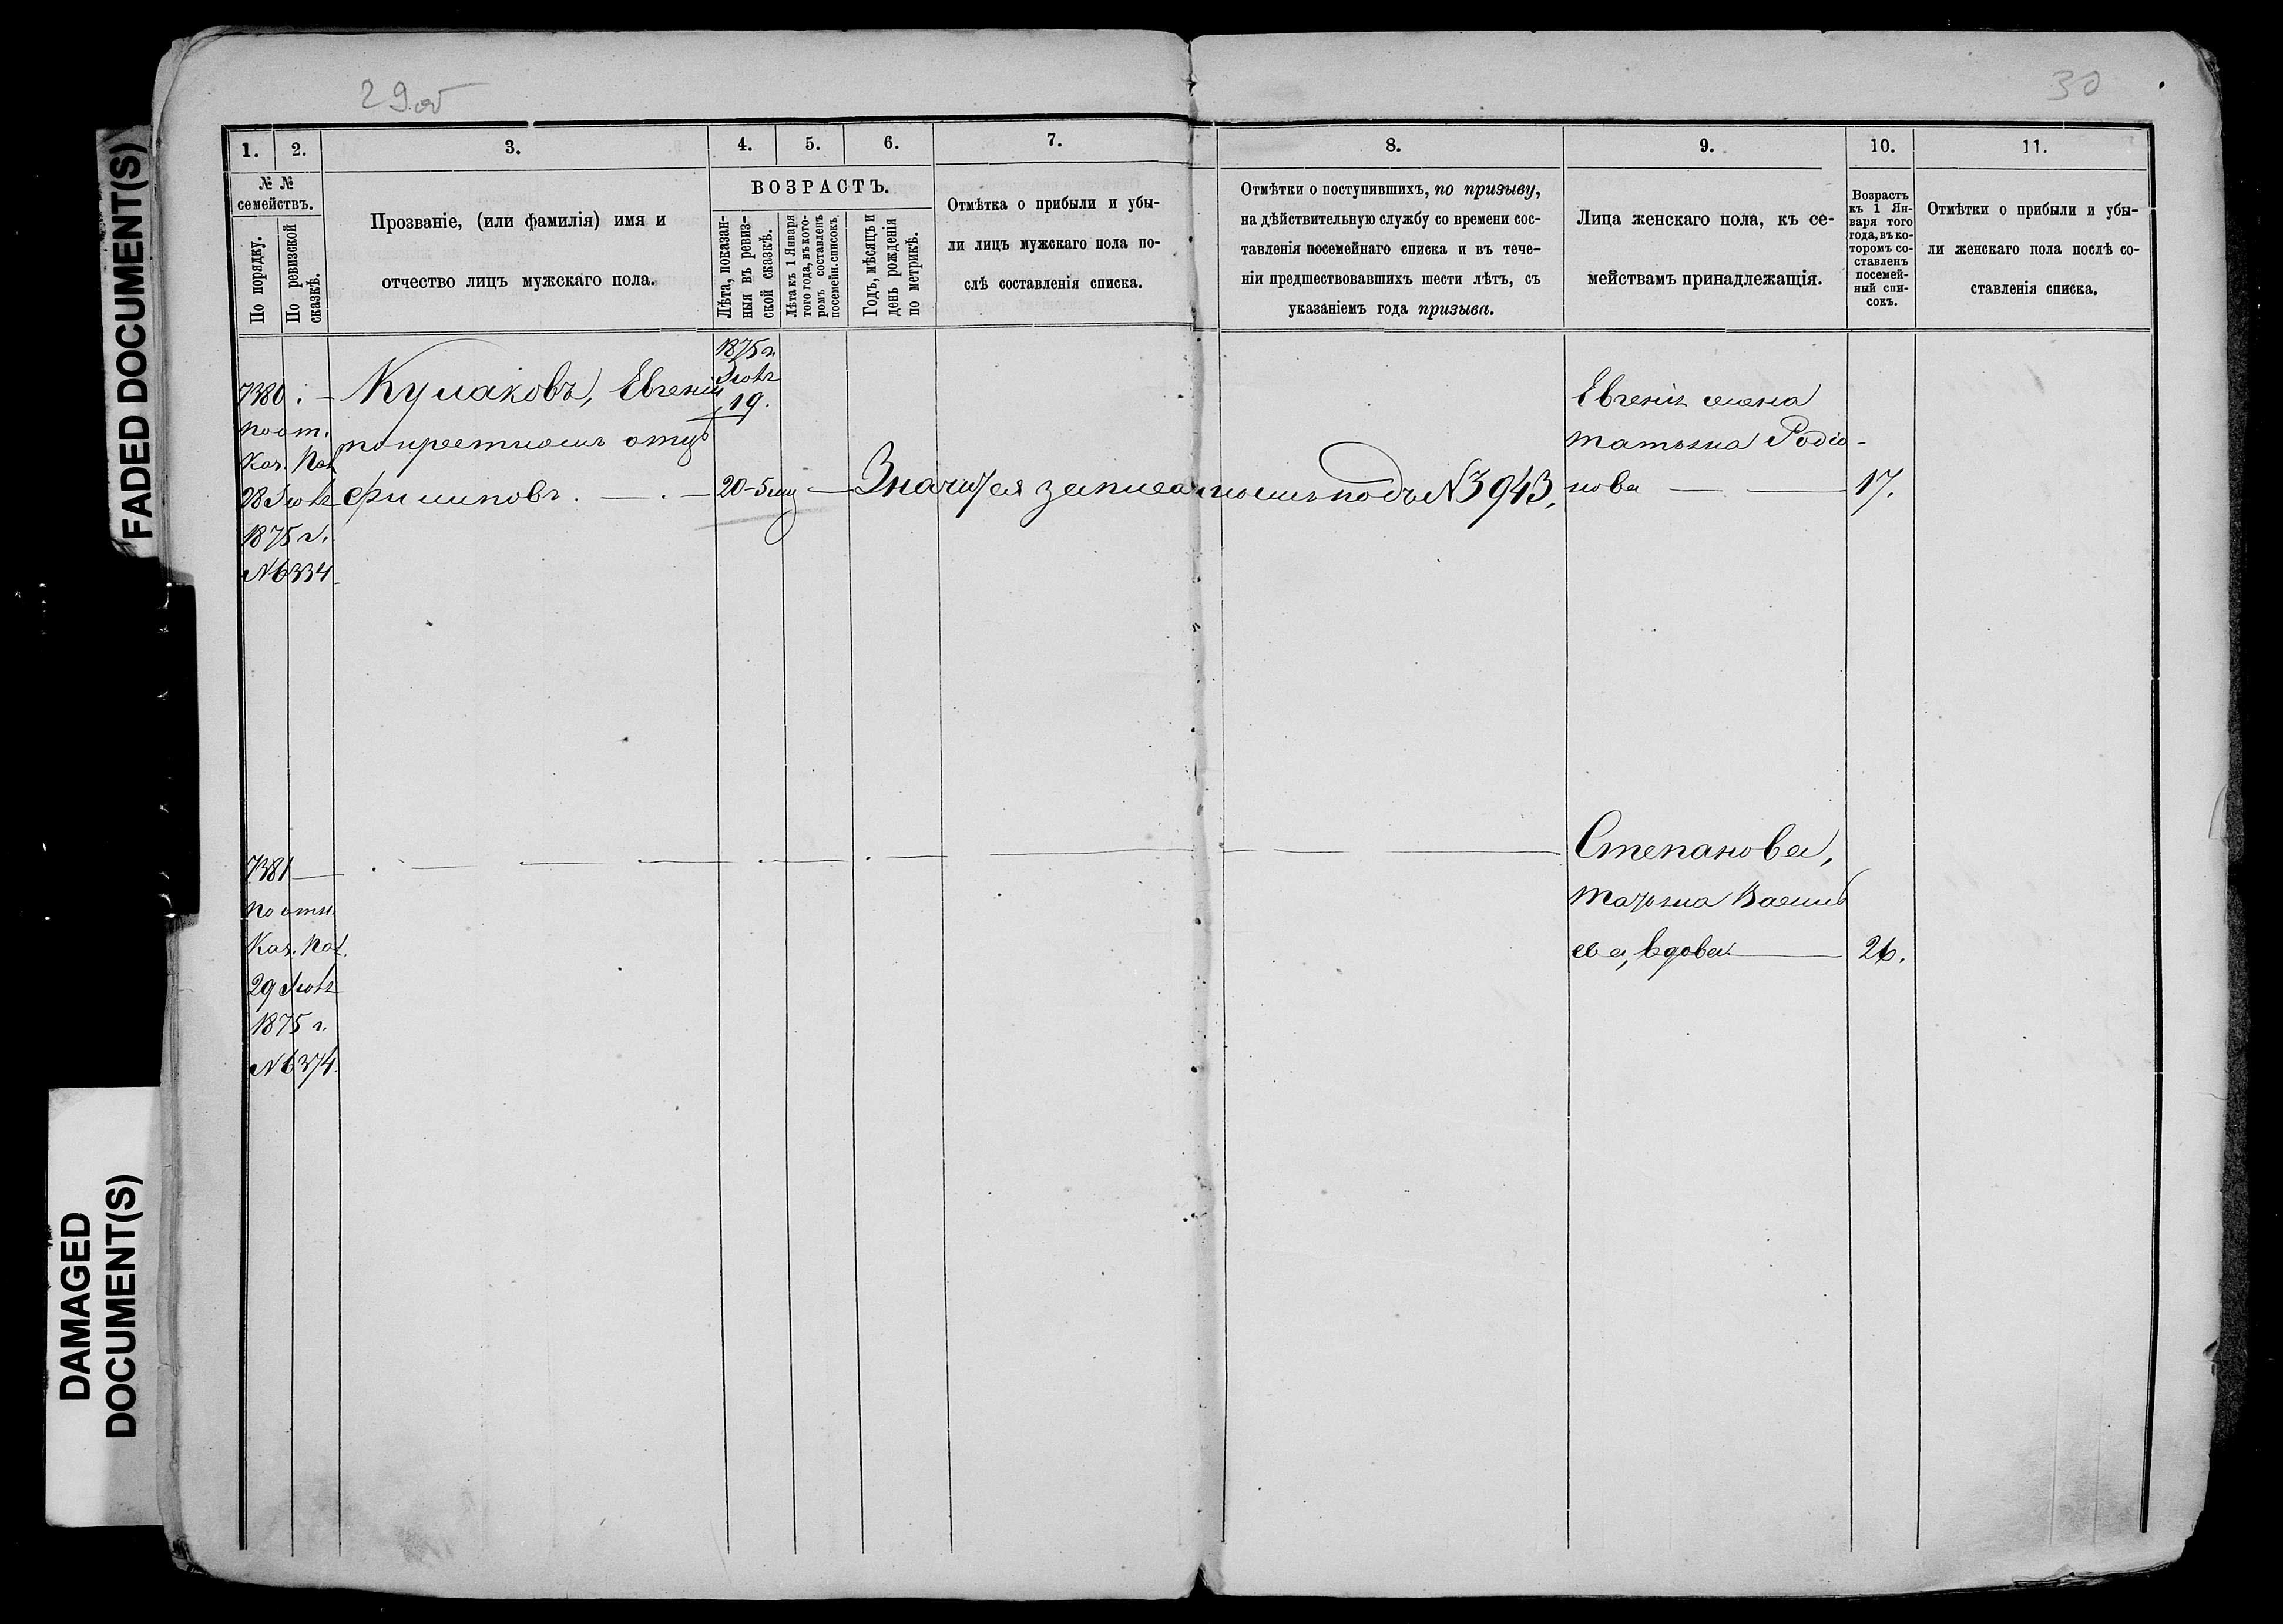 29об
30
FADED DOCUMENT(S)
DAMAGED
DOCUMENT(S)
1.
2.
3.
4.
5.
6.
7.
8.
9.
10.
11.
№ №
семействъ.
По порядку.
По ревизской
сказкѣ.
Прозваніе, (или фамилія) имя и
отчество лицъ мужскаго пола.
ВОЗРАСТЪ.
Лѣта, показан-
ныя въ ревиз-
ской сказкѣ.
Лѣта къ 1 Января
того года, въ кото-
ромъ составленъ
посемейн. списокъ.
Годъ, мѣсяцъ и
день рожденія
по метрикѣ.
Отмѣтка о прибыли и убы-
ли лицъ мужскаго пола по-
слѣ составленія списка.
Отмѣтки о поступившихъ, по призыву,
на дѣйствительную службу со времени сос-
тавленія посемейнаго списка и въ тече-
ніи предшествовавшихъ шести лѣтъ, съ
указаніемъ года призыва.
Лица женскаго пола, къ се-
мействамъ принадлежащія.
Возрастъ
къ 1 Ян-
варя того
года, въ ко-
торомъ со-
ставленъ
посемей-
ный спи-
сокъ.
Отмѣтки о прибыли и убы-
ли женскаго пола послѣ со-
ставленія списка.
7380
по от.
Каз. Пал
28 Іюля
1875 г.
№ 6334
Кулаковъ, Евгеній
по крестномъ отцѣ
Филиповъ.
1875 г.
Іюля
19.
20-5 м
Значится записаннымъ подъ № 3943.
Евгенія жена
Татьяна Родіо-
нова
17.
7381
по отн.
Каз. Пал.
29 Іюля
1875 г.
№ 6374.
Степанова,
Татьяна Василь
ева, вдова
26.